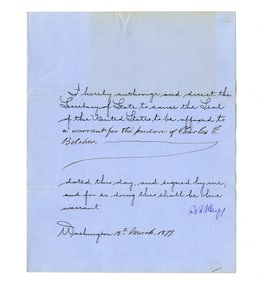 I hereby authorize and direct the
Secretary of State to cause the Seal
of the United States to be affixed to
a warrant for the pardon of Charles E.
Belcher.
dated this day, and signed by me,
and for so doing this shall be his
warrant.
Washington 13th March, 1877.
R B Hayes